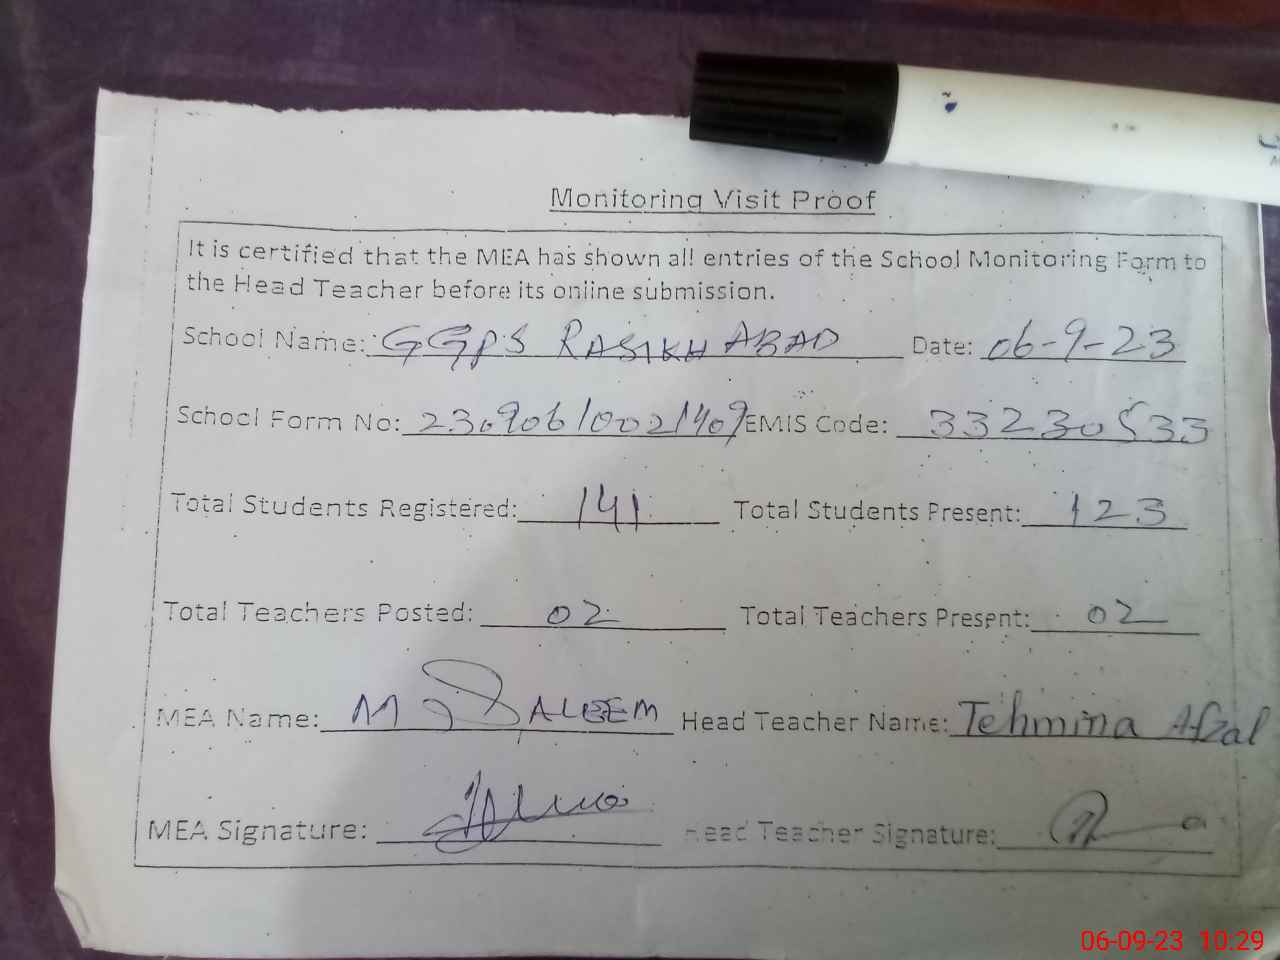 Monitoring Visit Proof
It is certified that the MEA has shown all entries of the School Monitoring Form to
the Head Teacher before its online submission.
School Name: GGPS RASIKH ABAD Date: 06-9-23
School Form No: 23090610021409 EMIS Code: 33230533
Total Students Registered: 141 Total Students Present: 123
Total Teachers Posted: 02 Total Teachers Present: 02
MEA Name: M SALEEM Head Teacher Name: Tehmina Afzal
MEA Signature: Head Teacher Signature:
06-09-23 10:29